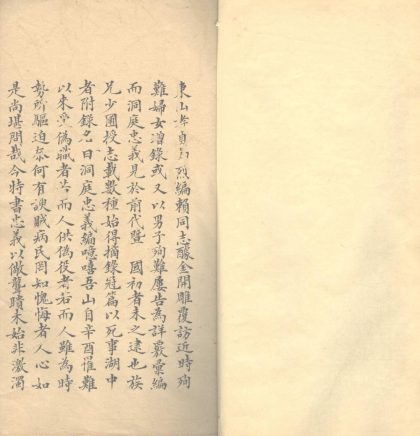 東山孝貞節烈編賴同志醵金開雕覆訪近時殉
難婦女潧錄或又以男子殉難屢告為詳覈彙編
而洞庭忠義見於前代暨　國初者未之逮也族
兄少圃授志載數種始得摘錄冠篇以死事湖中
者附錄名曰洞庭忠義編噫嘻吾山自辛酉罹難
以來受偽職者若而人供偽役者若而人雖為時
勢所驅迫柰何有諛賊病民罔知愧悔者人心如
是尚堪問哉今特書忠義以儆聾聵未始非激濁